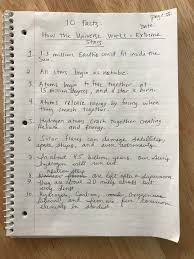 page
10 Facts:
Date:
How the Universe Works - Extreme
Stars
1. 1.3 million Earths could fit inside the
Sun.
2. All stars begin as nebulae.
3. Atoms begin to fuse together at
15 million degrees, and a star is born.
4. Atoms release energy by fusing when
smash together.
5. Hydrogen atoms crash together creating
Helium and Energy.
6. Solar flares can damage satellites,
space ships, and even astronauts.
7. In about 4.5 billion years, our
hydrogen will run out
8. Neutron stars are left after a supernova
they are about 20 miles across but
very dense
9. Hydrogen, carbon, oxygen,
and
elements in stardust